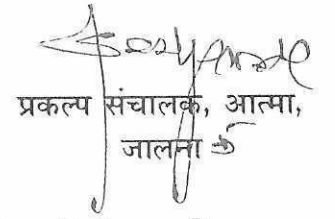 प्रकल्प संचालक, आत्मा,
जालना